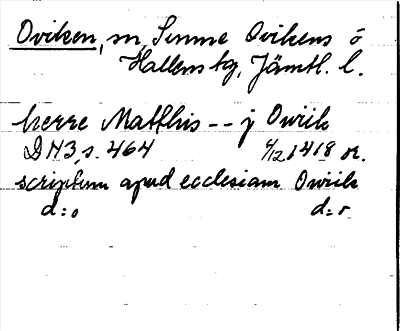 Oviken, sn, Sunne Ovikens o
Hallens tg, Jämtl. l.
herre Matthis -- j Owiik
DN3, s. 464 4/12 1418 or.
scriptum apud ecclesiam Owiik
d:o d:o